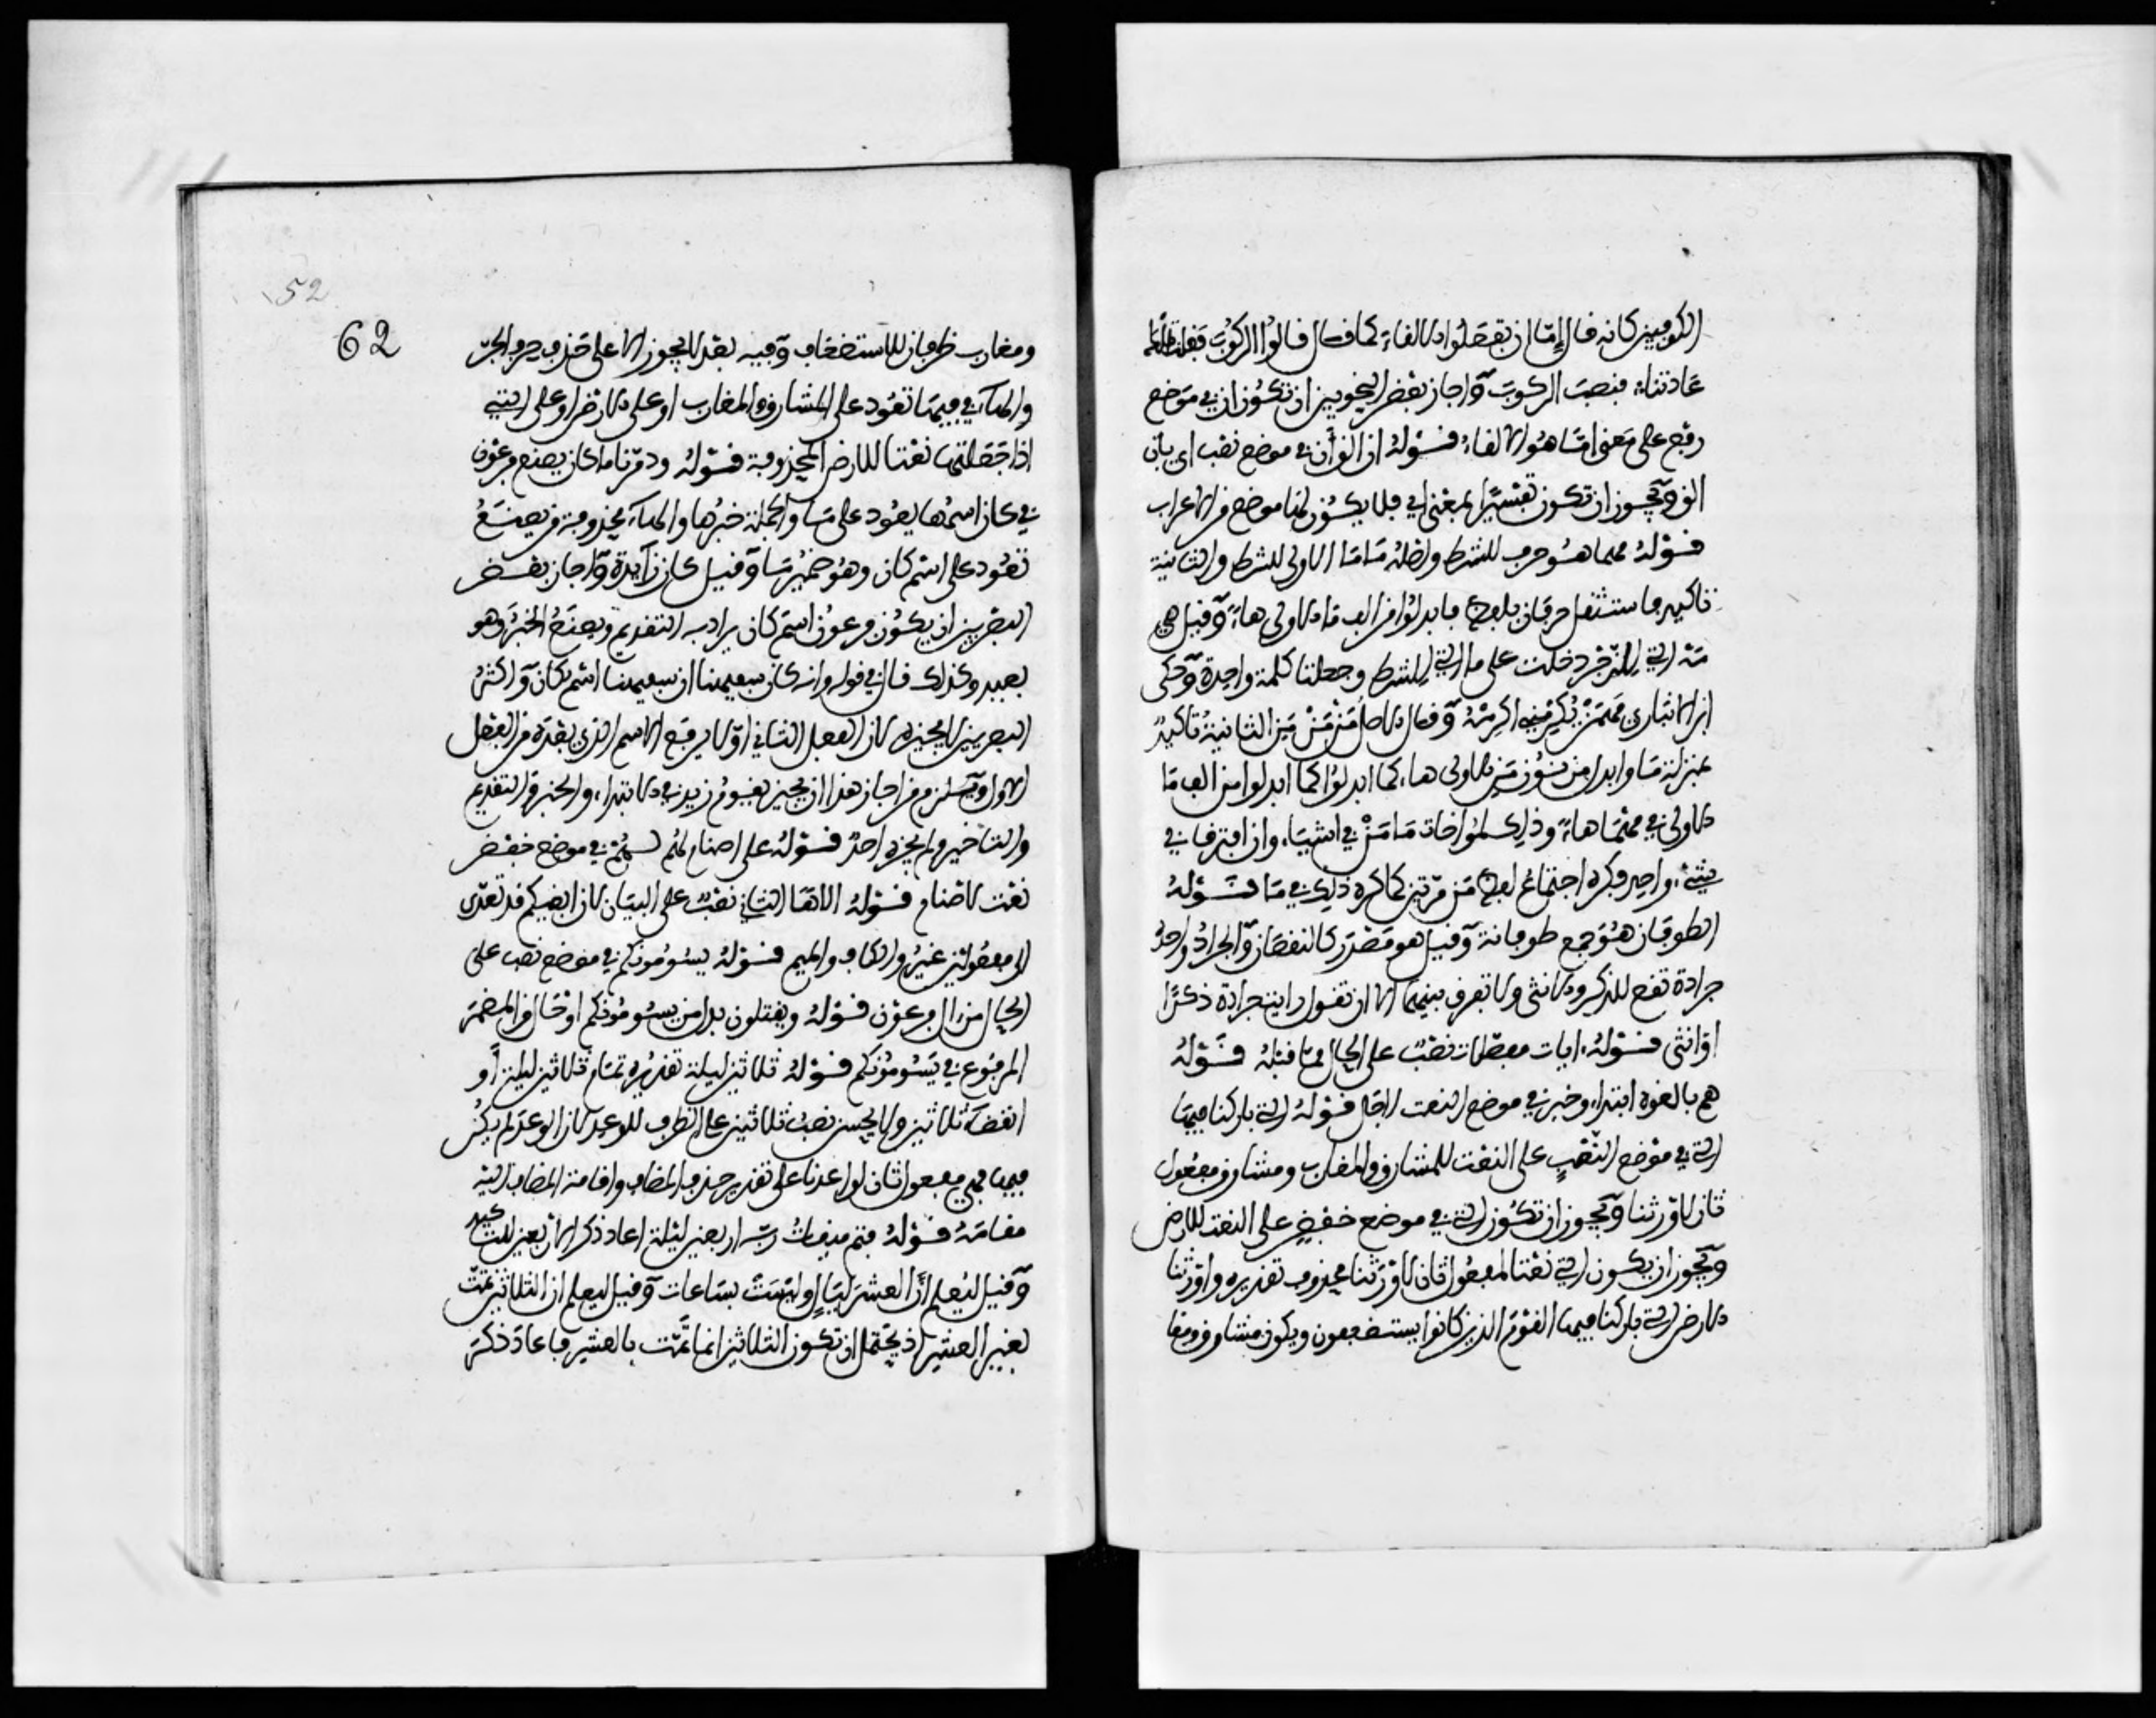 الكوفيين كانه قال إما ان تفعلوا الالقاء كما قال قالوا الركوب فقلت تلك
عادتنا، فنصب الركوب وأجاز بعض النحويين ان تكون ان في موضع
رفع على معنى اما هو الالقاء، قوله ان الق أن في موضع نصب اي بأن
الق ويجوز ان تكون تفسيرا بمعنى اي فلا يكون لها موضع من الاعراب
قوله مهما هو حرف للشرط واصله ما ما الاولى للشرط والثانية
تاكيد فاستثقل حرفان بلفظ فابدلوا من الف ما الاولى هاء، وقيل هي
مه التي للزجر دخلت على ما التي للشرط وجعلتا كلمة واحدة وحكى
ابن الانباري مهمن يكرمني اكرمه وقال الاصل من من من الثانية تاكيد
بمنزلة ما وابدل من نون من الاولى هاء، كما ابدلوا كما ابدلوا من الف ما
الاولى في مهما هاء، وذلك لمواخات ما من في اشياء، وان افترقا في
شيء، واحد وكره اجتماع لفظ من مرتين كما كره ذلك في ما قوله
الطوفان هو جمع طوفانة وقيل هو مصدر كالنقصان والجراد واحده
جرادة تقع للذكر والانثى ولا تفرق بينهما الا ان تقول رايت جرادة ذكرا
او انثى قوله، ايات مفصلات نصب على الحال مما قبله قوله
هم بالغوه ابتداء، وخبر في موضع النعت لاجل قوله التي باركنا فيها
التي في موضع النصب على النعت للمشارق والمغارب ومشارق مفعول
ثان لاورثنا ويجوز ان تكون التي في موضع خفض على النعت للارض
ويجوز ان يكون التي نعتا لمفعول ثان لاورثنا محذوف تقديره واورثنا
الارض التي باركنا فيها القوم الذين كانوا يستضعفون ويكون مشارق ومغا
52
62
ومغارب ظرفان للاستضعاف وفيه بعد لا يجوز الا على حذف حرف الجر
والهاء، في فيها تعود على المشارق والمغارب او على الارض او على التي
اذا جعلتها نعتا للارض المحذوفة قوله ودمرنا ما كان يصنع فرعون
في كان اسمها يعود على ما والجملة خبرها والهاء، محذوفة من يصنع
تعود على اسم كان وهو ضمير ما وقيل كان زايدة وأجاز بعض
البصريين ان يكون فرعون اسم كان يراد به التقديم ويصنع الخبر وهو
بعيد وكذلك قال في قوله وانه كان سفيهنا ان سفيهنا اسم كان واكثر
البصريين لا يجيزه لان الفعل الثاني اولا يرفع الاسم الذي بعده من الفعل
الاول ويلزم من اجاز هذا ان يجيز يقوم زيد في الابتداء، والخبر والتقديم
والتاخير ولم يجزه احد قوله على اصنام لهم لهم في موضع خفض
نعت لاصنام قوله الاها الثاني نصب على البيان لان ابغيكم قد تعدى
الى مفعولين غير والكاف والميم قوله يسومونكم في موضع نصب على
الحال من ال فرعون قوله ويقتلون بدل من يسومونكم او حال من المضمر
المرفوع في يسومونكم قوله ثلاثين ليلة تقديره تمام ثلاثين ليلة أو
انقضاء ثلاثين ولا يحسن نصب ثلاثين على الظرف للوعد لان الوعد لم يكن
فيها فهي مفعول ثان لواعدنا على تقدير حذف المضاف واقامة المضاف اليه
مقامه قوله فتم ميقات ربه اربعين ليلة اعاد ذكر الاربعين للتاكيد
وقيل ليعلم أن العشر ليال وليست بساعات وقيل ليعلم ان الثلاثين تمت
بغير العشر اذ يحتمل ان تكون الثلاثين انما تمت بالعشر فاعاد ذكر